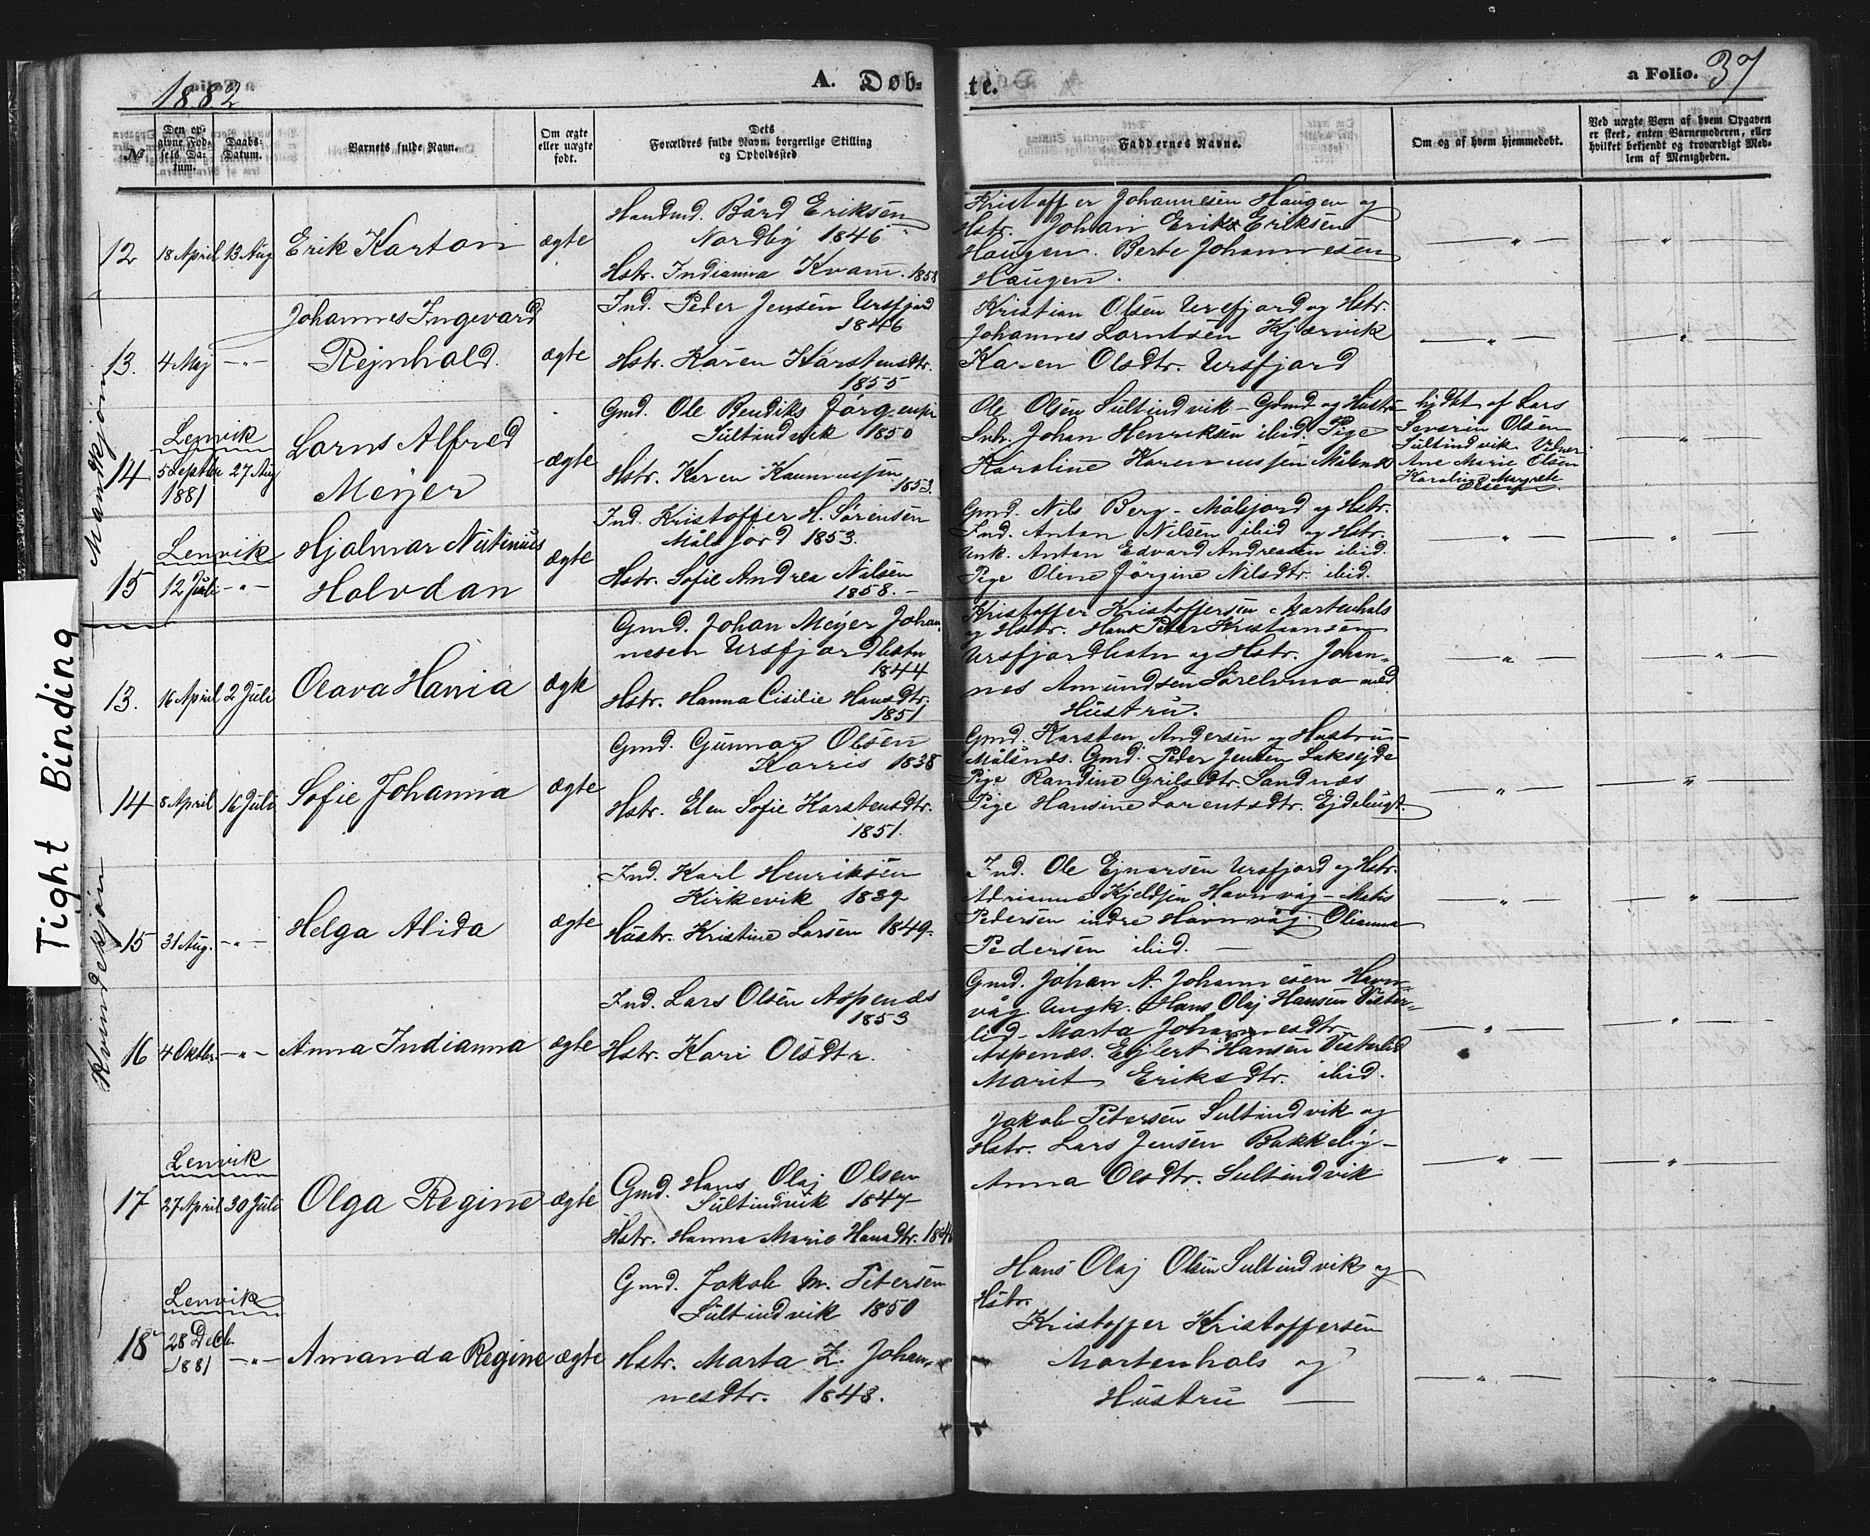 1882
A. Døb-
te.
a Folio. 37
№
Den opgivne Fødsels Datum.
Daabs-Datum.
Barnets fulde Navn.
Om ægte eller uægte født.
Dets Forældres fulde Navn, borgerlige Stilling og Opholdssted
Faddernes Navne.
Om og af hvem hjemmedøbt.
Ved uægte Børn af hvem Opgaven er skeet, enten Barnemoderen, eller hvilket bekjendt og troværdigt Medlem af Menigheden.
Mandkjøn
12 18 April 13 Aug Erik Karton ægte
Handmd. Bård Eriksen
Nordby 1846
Hstr. Indianna Kvam. 1858
Kristoffer Johannesen Haugen og
Hstr. Johan Erik Eriksen
Haugen. Berte Johannesen
Haugen.
— " — — " —
13. 4 Maj - " - Johannes Ingevard
Rejnhold. ægte
Ind. Peder Jensen Ursfjord
1846
Hstr. Karen Karstensdtr.
1855
Kristian Olsen Ursfjord og Hstr.
Johannes Lorntsen Kjærvik
Karen Olsdtr. Ursfjord
— " — — " —
Lenvik
14 5 Septbr 1881 27 Aug
Lorns Alfred
Meijer ægte
Gmd. Ole Bendiks Jørgensen
Sultindvik 1850
Hstr. Karen Rasmussen
1853.
Ole Olsen Sultindvik - Gdmd og Hustru
Inh. Johan Henriksen ibid. Pige
Karoline Rasmussen Målsnes
hjdbt af Lars
Severin Olsen
Sultindvik Vidner
Ane Marie Olsen
Karoline Margrete
Olsen
— " —
Lenvik
15 12 Juli - " -
Hjalmar Nutinius
Halvdan ægte
Ind. Kristoffer H. Sørensen
Målsfjord 1853.
Hstr. Sofie Andrea Nilsen
1858. -
Gmd. Nils Berg - Målsjord og Hstr.
Ind. Anton Nilsen ibid og Hstr.
Unk. Anton Edvard Andreasen ibid.
Pige Oline Jørgine Nilsdtr. ibid.
— " — — " —
Kvindekjøn
13. 16 April 2 Juli Olava Hansia ægte
Gmd. Johan Meijer Johan-
nesen Ursfjordbotn
1844
Hstr. Hanna Cisilie Hansdtr.
1851
Kristoffer Kristoffersen Mortenhals
og Hstr. Hans Peter Kristiansen
Ursfjordbotn og Hstr. Johan-
nes Amundsen Sørelvmo med
Hustru.
— " — — " —
14 8 April 16 Juli Sofie Johanna ægte
Gmd. Gunnar Olsen
Kårvis 1838
Hstr. Elen Sofie Karstensdtr.
1851.
Gmd. Karsten Andersen og Hustru -
Målsnes. Gmd. Peder Jensen Laksejde
Pige Randine Grilsdtr. Sandnæs
Pige Hansine Lorentsdtr. Ejdebugt.
— " — — " —
15 31 Aug. - " - Helga Alida ægte
Ind. Karl Henriksen
Kirkevik 1839
Hustr. Kristine Larsen 1849.
Ind. Ole Ejnarsen Ursfjord og Hstr.
Adrianna Kjeldsen Havnvåg - Matis
Pedersen indre Havnvåg. Olianna
Pedersen ibid. —
— " — — " —
16 4 Oktbr. - " - Anna Indianna ægte
Ind. Lars Olsen Aspenes
1853
Hstr. Kari Olsdtr.
Gmd. Johan A. Johannesen Havn-
våg Ungk. Hans Olaj Hansen Vester-
lid - Marta Johannesdtr.
Aspenæs. Ejlert Hansen Vesterlid
Marit Eriksdtr. ibid.
— " — — " —
Lenvik
17 27 April 30 Juli Olga Regine ægte
Gmd. Hans Olaj Olsen
Sultindvik 1847
Hstr. Hanna Marie Hansdtr. 1846
Jakob Petersen Sultindvik og
Hstr. Lars Jensen Bakkeby -
Anna Olsdtr. Sultindvik
— " — — " —
Lenvik
18 28 Decb. 1881 - " - Amanda Regine ægte
Gmd. Jakob M. Petersen
Sultindvik 1850
Hstr. Marta Z. Johan-
nesdtr. 1848.
Hans Olaj Olsen Sultindvik og
Hstr.
Kristoffer Kristoffersen
Mortenhals og
Hustru —
— " — — " —
Tight Binding